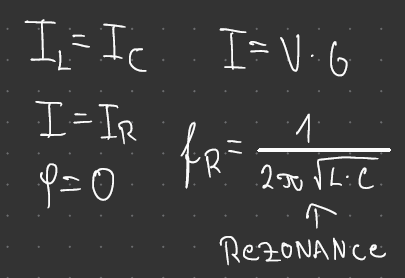 I_L = I_C
I = V · G
I = I_R
φ = 0
f_R = 1 / (2π √(L · C))
↑
REZONANCE